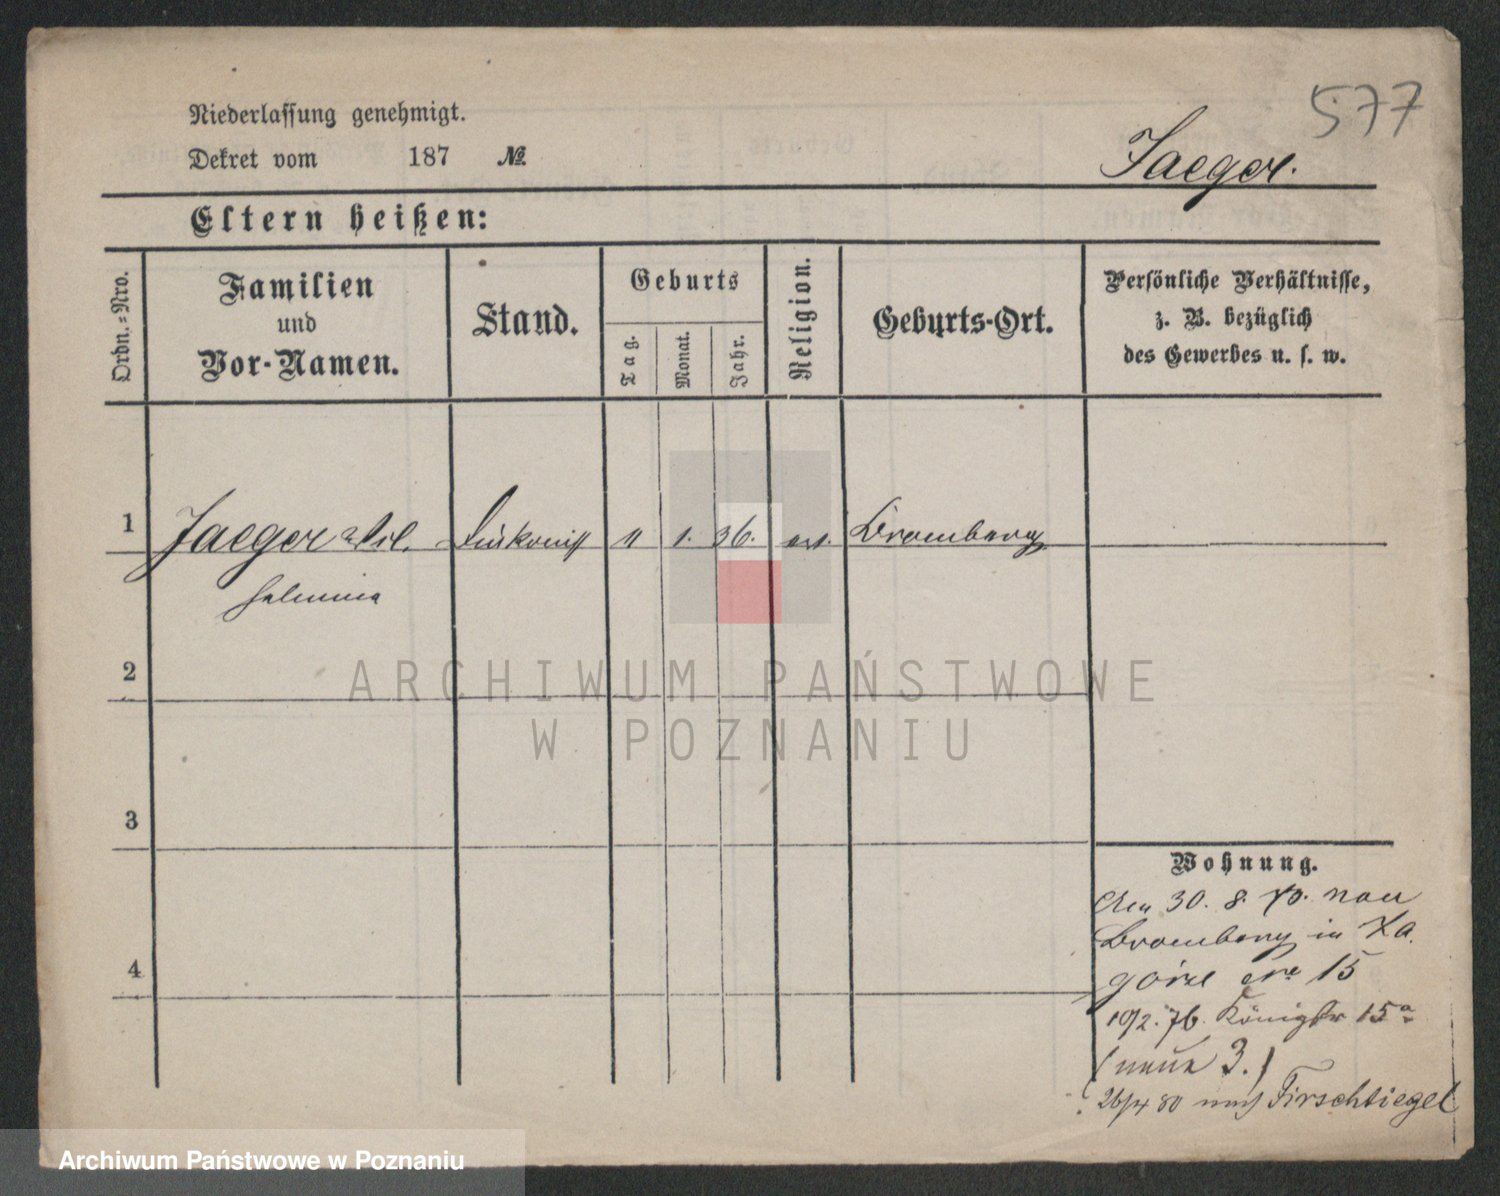 577
Niederlassung genehmigt.
Dekret vom 187 №
Jaeger.
Eltern heißen:
Ordn.-Nro.
Familien
und
Vor-Namen.
Stand.
Geburts
Tag.
Monat.
Jahr.
Religion.
Geburts-Ort.
Persönliche Verhältnisse,
z. B. bezüglich
des Gewerbes u. s. w.
1 Jaeger 11 1. 36. ev. Bromberg
2
3
4
Wohnung.
Den 30. 8. 70. von
Bromberg in Za
górze No 15
19/2. 76. Königstr 15a
(neue 3.)
26/4 80 nach Tirschtiegel
ARCHIWUM PAŃSTWOWE
W POZNANIU
Archiwum Państwowe w Poznaniu